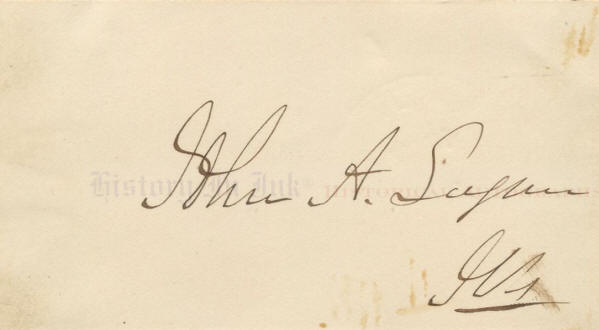 John A. Logan
Ills
History In Ink® HISTORICAL